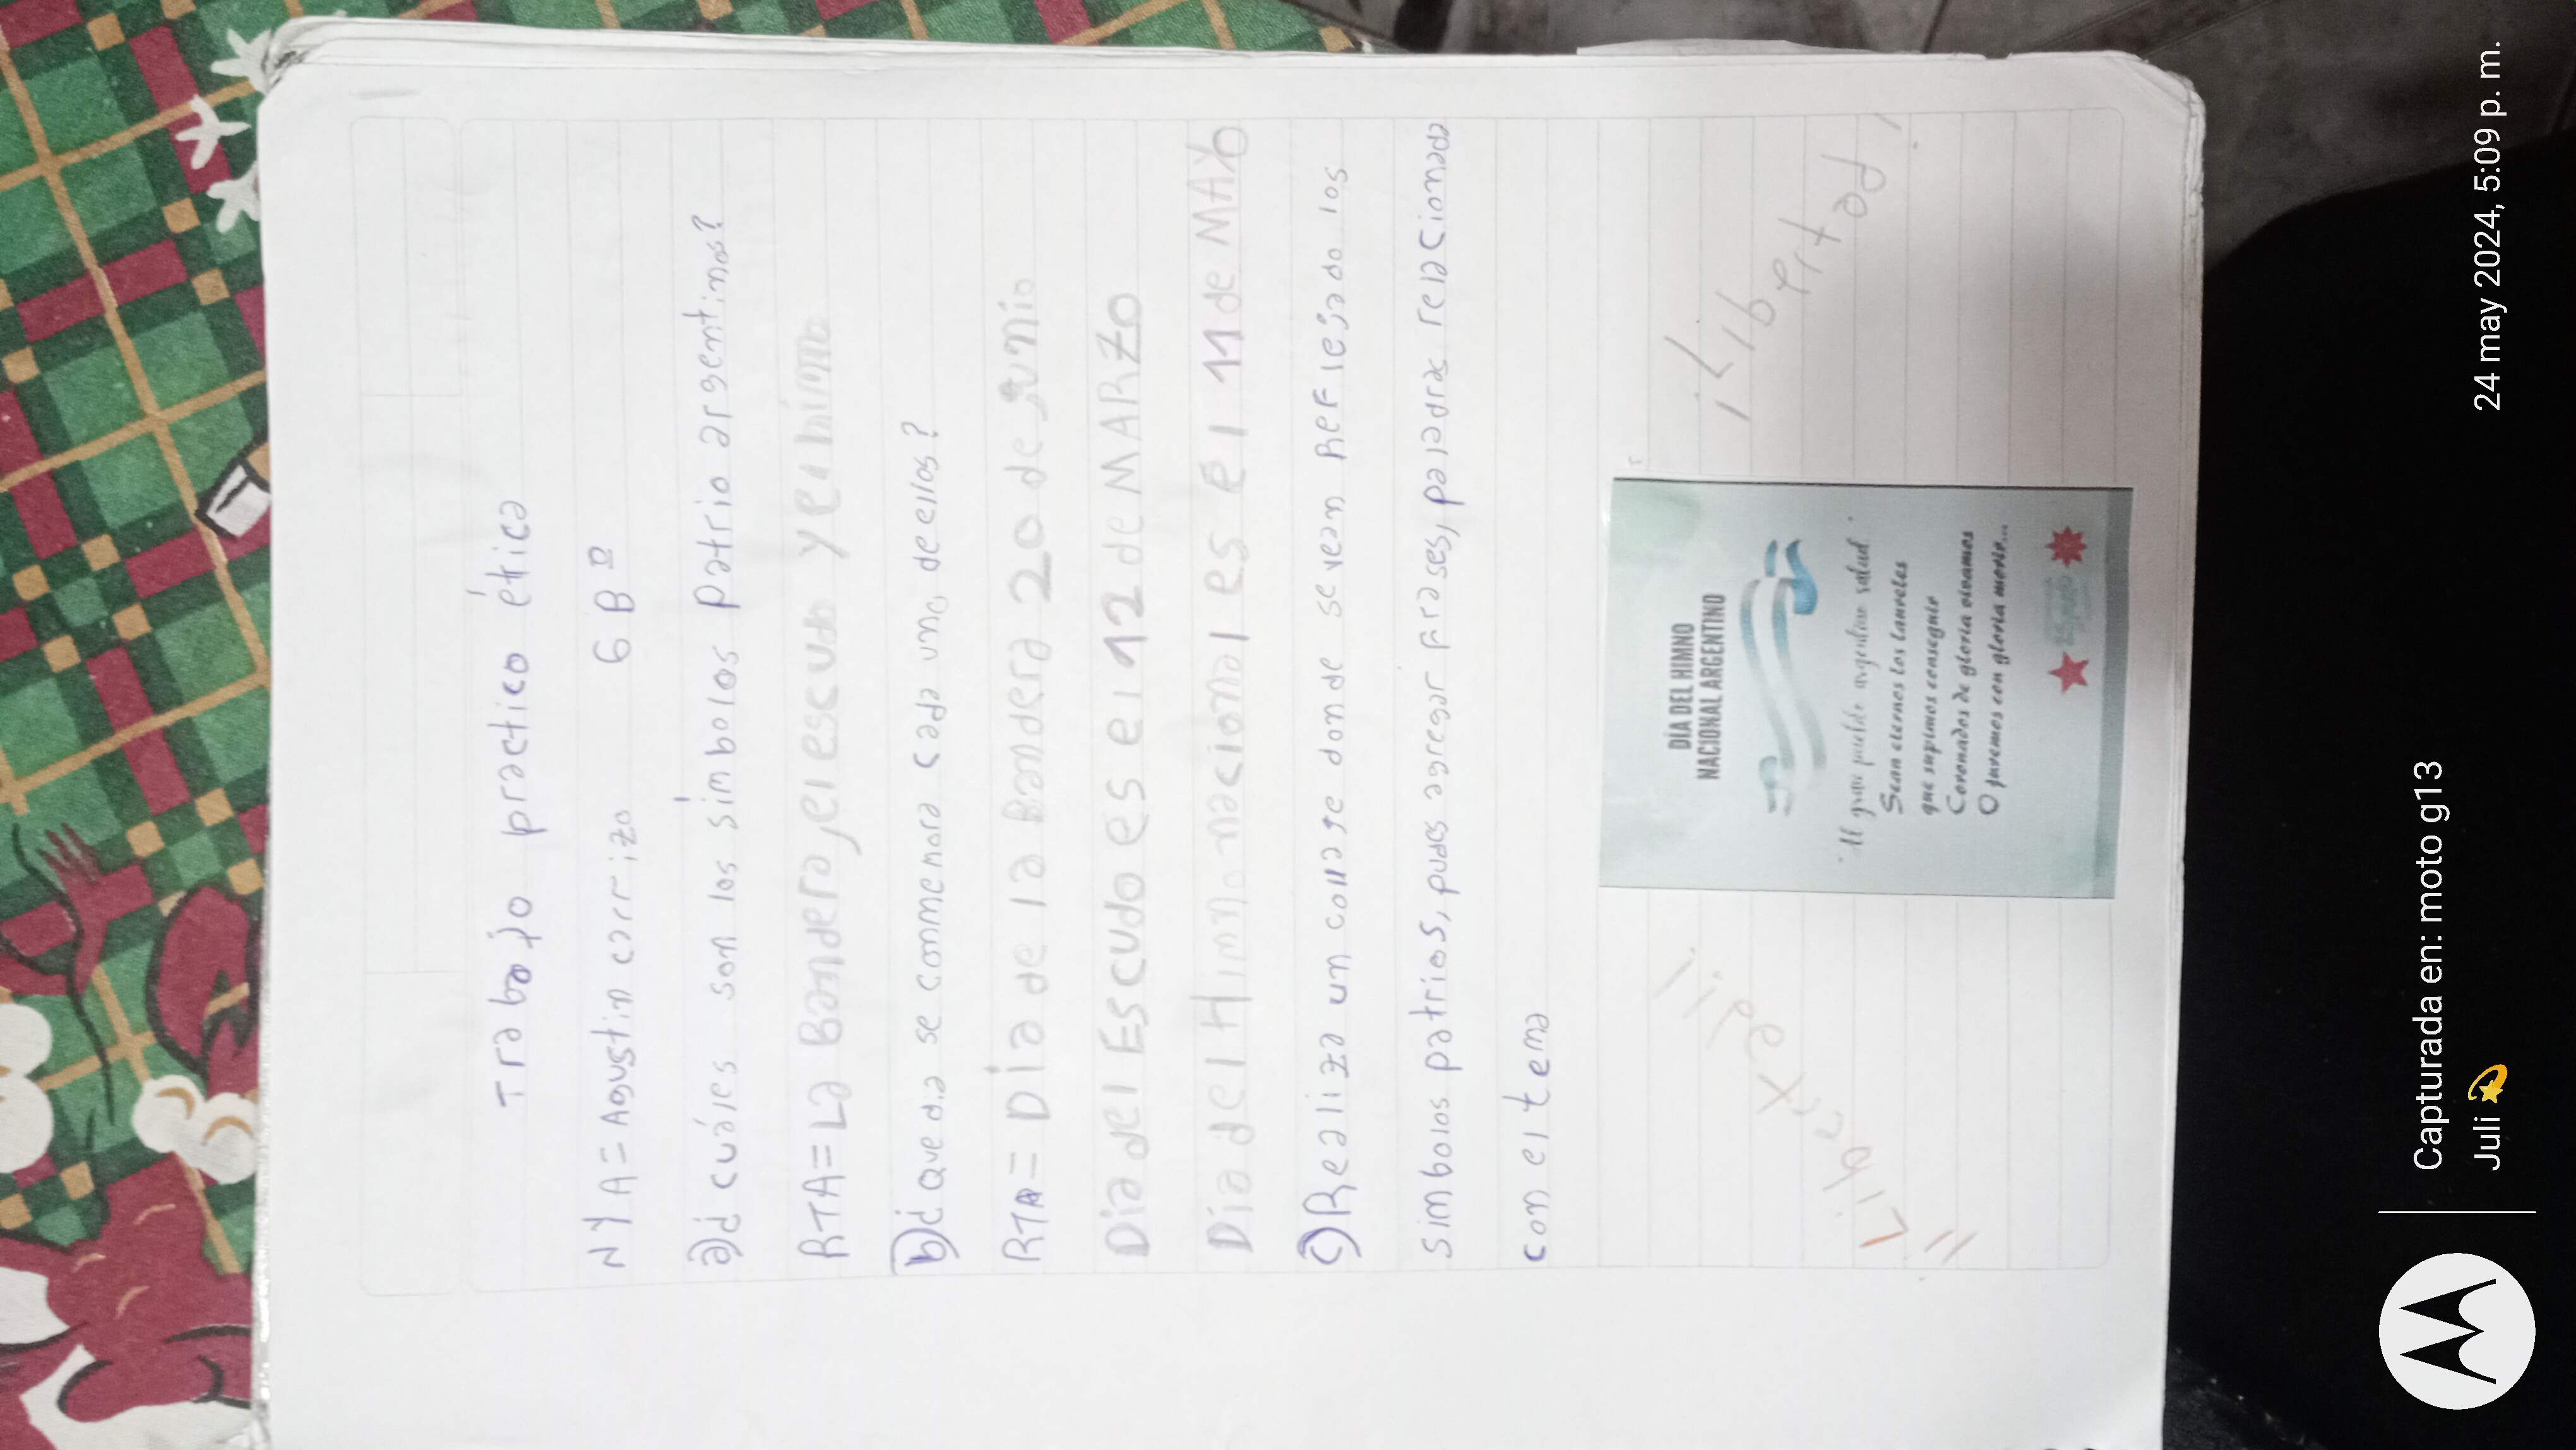 Trabajo practico ética
N Y A = Agustin carrizo 6 B º
a)¿ cuáles son los símbolos patrio argentinos?
RTA= La Bandera, el escudo y el himno
b)¿ que dia se commemora cada uno de ellos?
RTA= Día de la Bandera 20 de junio
Dia del Escudo es el 12 de MARZO
Dia del Himno nacional es el 11 de MAYO
c) Realiza un collage donde se vean Reflejado los
simbolos patrios, pudes agregar frases, palabras relacionada
con el tema
¡Libertad!
DÍA DEL HIMNO
NACIONAL ARGENTINO
"Al gran pueblo argentino salud".
Sean eternos los laureles
que supimos conseguir
Coronados de gloria vivamos
O juremos con gloria morir...
Capturada en: moto g13
Juli 💫
24 may 2024, 5:09 p. m.